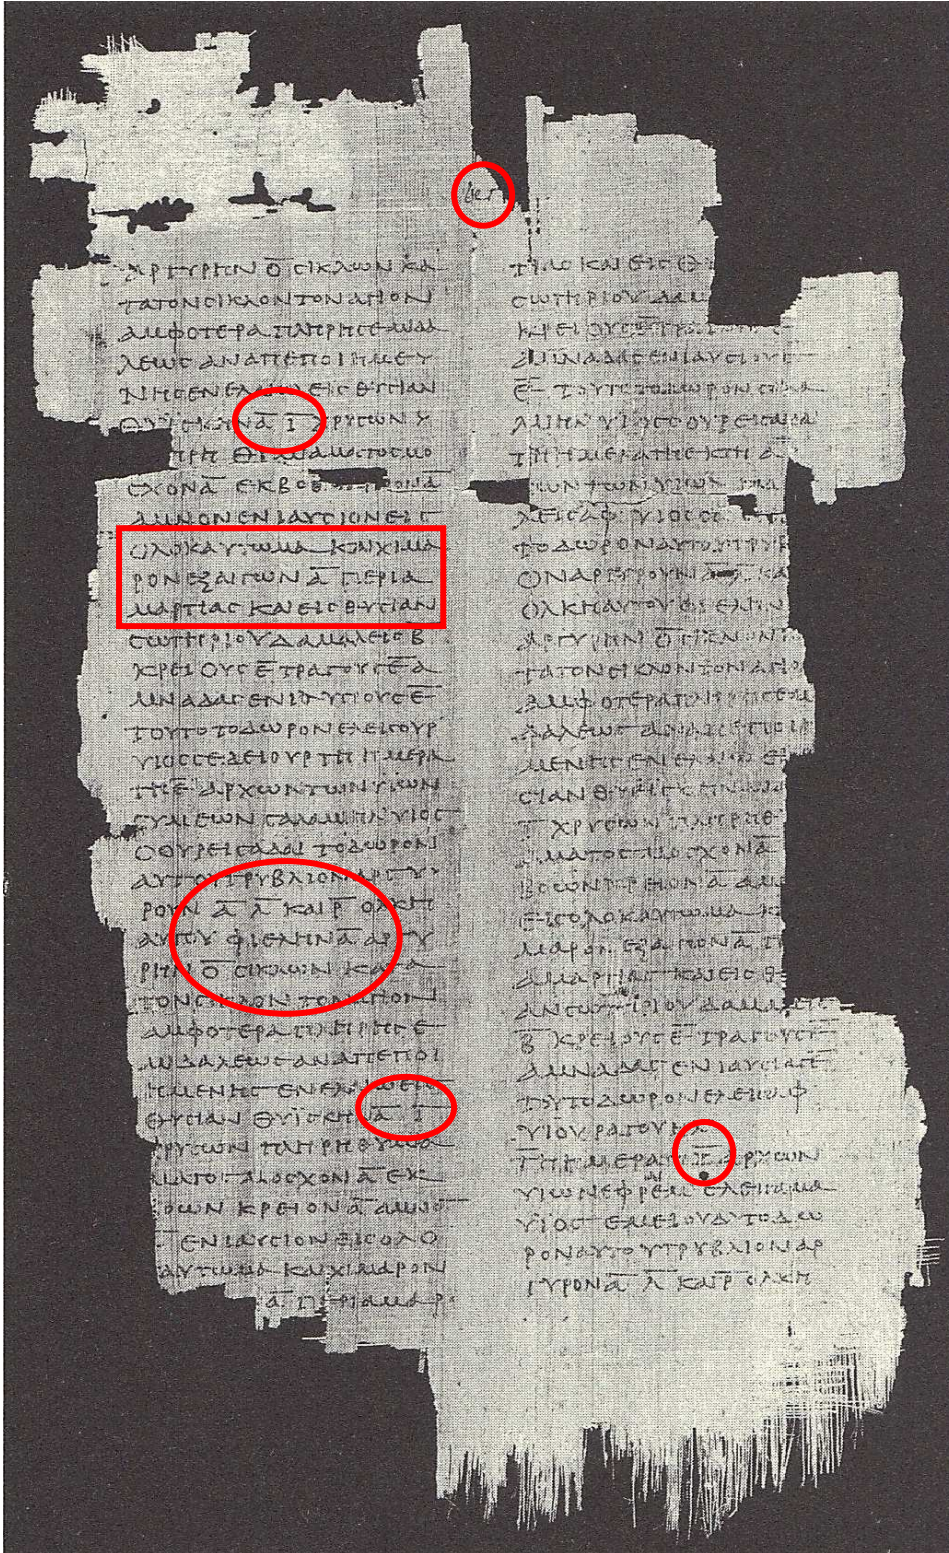 ΑΡΓΥΡΗΝ Ο̅ ϹΙΚΛΩΝ ΚΑ
ΤΑ ΤΟΝ ϹΙΚΛΟΝ ΤΟΝ ΑΓΙΟΝ
ΑΜΦΟΤΕΡΑ ΠΛΗΡΗ ϹΕΜΙΔΑ
ΛΕΩϹ ΑΝΑΠΕΠΟΙΗΜΕΥ
ΝΗϹ ΕΝ ΕΛΑΙΩ ΕΙϹ ΘΥϹΙΑΝ
ΘΥΙϹΚΗΝ Α̅ Ι̅ ΧΡΥϹΩΝ
ΠΛΗΡΗ ΘΥΜΙΑΜΑΤΟϹ ΜΟ
ϹΧΟΝ Α̅ ΕΚ ΒΟΩΝ ΚΡΙΟΝ Α̅
ΑΜΝΟΝ ΕΝΙΑΥϹΙΟΝ ΕΙϹ
ΟΛΟΚΑΥΤΩΜΑ ΚΑΙ ΧΙΜΑ
ΡΟΝ ΕΞ ΑΙΓΩΝ Α̅ ΠΕΡΙ Α
ΜΑΡΤΙΑϹ ΚΑΙ ΕΙϹ ΘΥϹΙΑΝ
ϹΩΤΗΡΙΟΥ ΔΑΜΑΛΕΙϹ Β̅
ΚΡΕΙΟΥϹ Ε̅ ΤΡΑΓΟΥϹ Ε̅ Α
ΜΝΑΔΑϹ ΕΝΙΑΥϹΙΟΥϹ Ε̅
ΤΟΥΤΟ ΤΟ ΔΩΡΟΝ ΕΛΕΙϹΟΥΡ
ΥΙΟϹ ϹΕΔΕΙΟΥΡ ΤΗ ΗΜΕΡΑ
ΤΗ Ε̅ ΑΡΧΩΝ ΤΩΝ ΥΙΩΝ
ϹΥΜΕΩΝ ϹΑΛΑΜΙΗΛ ΥΙΟϹ
ΟΘΥΡΕΙϹΑΔΑΙ ΤΟ ΔΩΡΟΝ
ΑΥΤΟΥ ΤΡΥΒΛΙΟΝ ΑΡΓΥ
ΡΟΥΝ Α̅ Λ̅ ΚΑΙ Ρ̅ ΟΛΚΗ
ΑΥΤΟΥ ΦΙΕΛΗΝ Α̅ ΑΡΓΥ
ΡΗΝ Ο̅ ϹΙΚΛΩΝ ΚΑΤΑ
ΤΟΝ ϹΙΚΛΟΝ ΤΟΝ ΑΓΙΟΝ
ΑΜΦΟΤΕΡΑ ΠΛΗΡΗ ϹΕ
ΜΙΔΑΛΕΩϹ ΑΝΑΠΕΠΟΙ
ΗΜΕΝΗϹ ΕΝ ΕΛΑΙΩ ΕΙϹ
ΘΥϹΙΑΝ ΘΥΙϹΚΗΝ Α̅ Ι̅
ΧΡΥϹΩΝ ΠΛΗΡΗ ΘΥΜΙΑ
ΜΑΤΟϹ ΜΟϹΧΟΝ Α̅ ΕΚ
ΒΟΩΝ ΚΡΕΙΟΝ Α̅ ΑΜΝΟ
ΕΝΙΑΥϹΙΟΝ ΕΙϹ ΟΛΟ
ΚΑΥΤΩΜΑ ΚΑΙ ΧΙΜΑΡΟΝ
Α̅ ΠΕΡΙ ΑΜΑΡ
ΤΙΑϹ ΚΑΙ ΕΙϹ Θ
ϹΩΤΗΡΙΟΥ ΔΑΜ
ΚΡΕΙΟΥϹ Ε̅ ΤΡΑ
ΑΜΝΑΔΑϹ ΕΝΙΑΥϹΙΟΥϹ
Ε̅ ΤΟΥΤΟ ΤΟ ΔΩΡΟΝ ϹΑΛΑ
ΜΙΗΛ ΥΙΟϹ ΟΥΡΕΙϹΑΔΑ
ΤΗ ΗΜΕΡΑ ΤΗ ΕΚΤΗ Α
ΧΩΝ ΤΩΝ ΥΙΩΝ ΓΑΔ
ΛΕΙϹΑΦ ΥΙΟϹ
ΤΟ ΔΩΡΟΝ ΑΥΤΟΥ ΤΡΥΒ
ΑΡΓΥΡΟΥΝ Α̅ Λ̅ ΚΑ
ΟΛΚΗ ΑΥΤΟΥ ΦΙΕΛΗΝ
ΑΡΓΥΡΗΝ Ο̅
ΤΑ ΤΟΝ ϹΙΚΛΟΝ ΤΟΝ ΑΓΙΟ
ΑΜΦΟΤΕΡΑ ΠΛΗΡΗ ϹΕΜΙ
ΔΑΛΕΩϹ ΑΝΑΠΕΠΟΙΗ
ΜΕΝΗϹ ΕΝ ΕΛΑΙΩ ΕΙ
ϹΙΑΝ ΘΥΙϹΚΗΝ
Ι̅ ΧΡΥϹΩΝ ΠΛΗΡΗ Θ
ΜΙΑΜΑΤΟϹ ΜΟϹΧΟΝ Α̅
ΒΟΩΝ ΚΡΕΙΟΝ Α̅ ΑΜ
ΕΙϹ ΟΛΟΚΑΥΤΩΜΑ Κ
ΜΑΡΟΝ ΕΞ ΑΙΓΩΝ Α̅ Π
ΑΜΑΡΤΙΑϹ ΚΑΙ ΕΙϹ Θ
ΑΝ ϹΩΤΗΡΙΟΥ ΔΑΜΑΛΕΙϹ
Β̅ ΚΡΕΙΟΥϹ Ε̅ ΤΡΑΓΟΥϹ
ΑΜΝΑΔΑϹ ΕΝΙΑΥϹΙΑϹ Ε̅
ΤΟΥΤΟ ΔΩΡΟΝ ΕΛΕΙϹΑΦ
ΥΙΟΥ ΡΑΓΟΥΗΛ
ΤΗ ΗΜΕΡΑ ΤΗ Ζ̅ ΑΡΧΩΝ
ΥΙΩΝ ΕΦΡΕΜ ΕΛΕΙϹΑΜΑ
ΥΙΟϹ ΕΜΕΙΟΥΔ ΥΤΟ ΔΩ
ΡΟΝ ΑΥΤΟΥ ΤΡΥΒΛΙΟΝ ΑΡ
ΓΥΡΟΝ Α̅ Λ̅ ΚΑΙ Ρ̅ ΟΛΚΗ